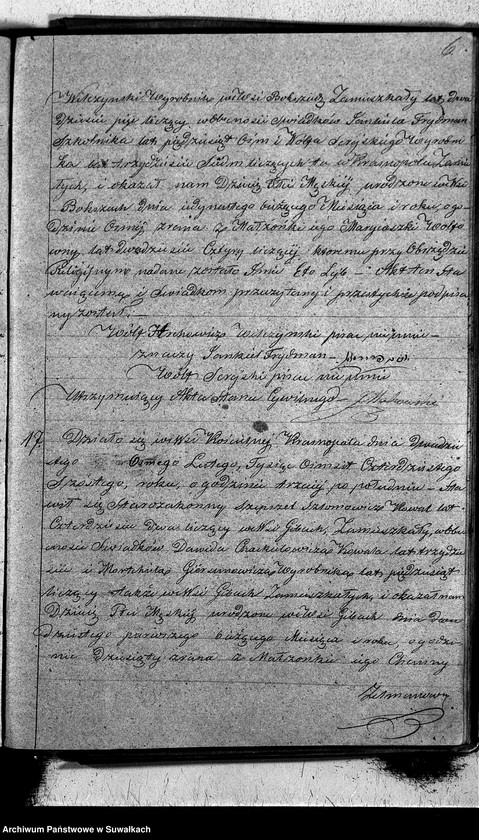 6.
Wilczynski Wyrobnik w Wsi Boksze Zamieszkały lat dwa
Dzieścia pięć liczący w obecności Świadków Jankiela Frydman
Szkolnika lat pięćdziesiąt Ośm i Wolfa Serejskiego Wyrobni
ka lat trzydzieści Siedm liczących tu w Krasnopolu Zamie
łych, i okazał nam Dziecię Płci Męskiej, urodzone w Wsi
Bokszach dnia bieżącego Miesiąca i roku, o go
dzinie Ósmej zrana z Małżonki jego
lat dwadzieścia Cztery liczącej któremu przy Obrzędzie
Religijnym nadane zostało Imie Leyb – Akt ten Sta
wającemu i Świadkom przeczytany i przez tychże podpisa
ny został. –
Wolf Wilczynski pisać nieumie –
znaczy Jankiel Frydman –
Wolf Serejski pisać nieumie
Utrzymujący Akta Stanu Cywilnego –
17. Działo się w Wsi Kościelnej Krasnopolu dnia Dwudzie
stego Osmego Lutego, Tysiąc Ośmset Czterdziestego
Szóstego, roku, o godzinie trzeciej po południu – Sta
wił się Starozakonny Szlomowicz Kowal lat
Czterdzieścia dwa liczący w Wsi Gibach, Zamieszkały, w obe
cności Świadków Dawida Kowala lat trzydzie
ści i Mortchela Wyrobnika lat pięćdziesiąt
liczący także w Wsi Gibach Zamieszkałych, i okazał nam
Dziecię Płci Męskiej urodzone w Wsi Gibach dnia Dwu
dziestego pierwszego bieżącego Miesiąca i roku, o godzi
nie Dziesiątej zrana z Małżonki jego Channy
Zelmanowny
Archiwum Państwowe w Suwałkach